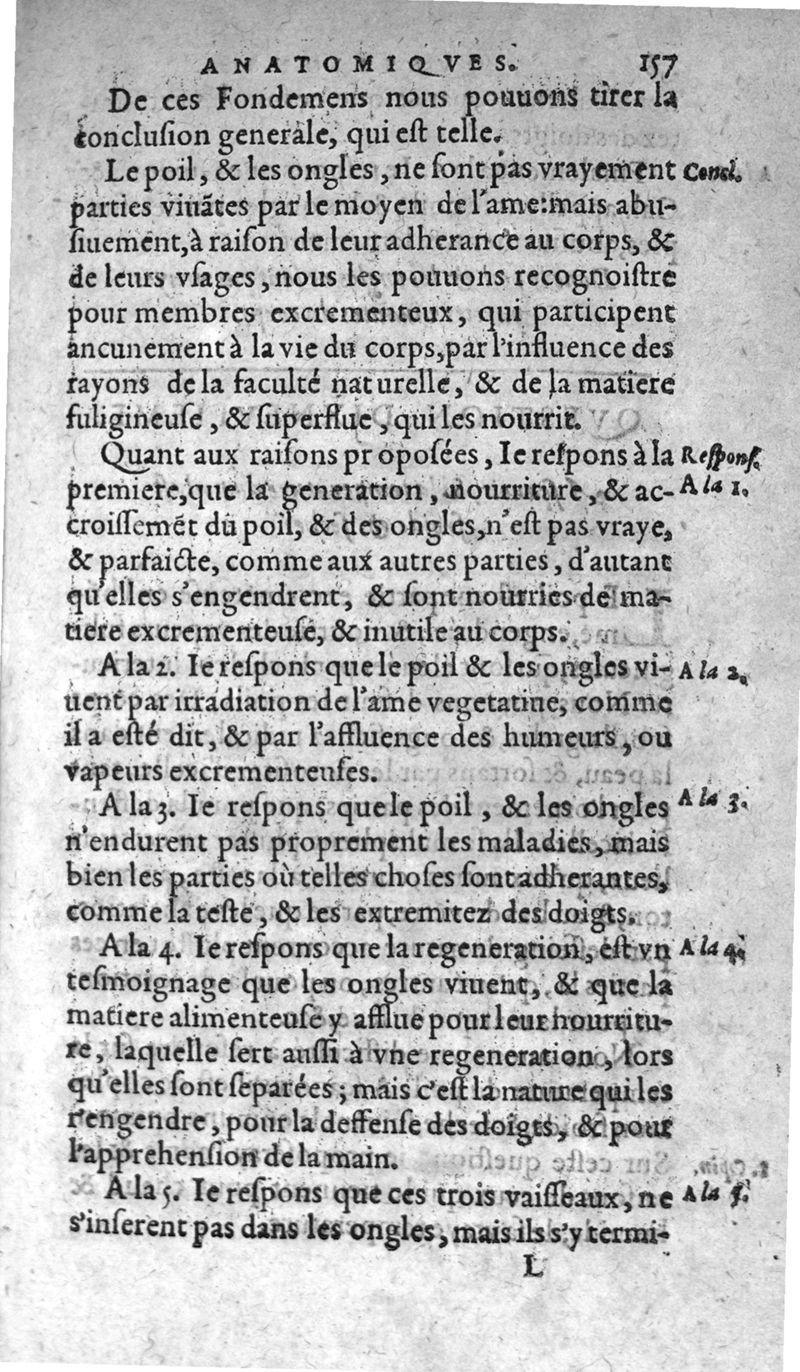 ANATOMIQVES. 157
De ces Fondemens nous pouuons tirer la
conclusion generale, qui est telle.
Le poil, & les ongles, ne sont pas vrayement Concl.
parties viuãtes par le moyen de l'ame: mais abu-
siuement, à raison de leur adherance au corps, &
de leurs vsages, nous les pouuons recognoistre
pour membres excrementeux, qui participent
ancunement à la vie du corps, par l'influence des
rayons de la faculté naturelle, & de la matiere
fuligineuse, & superflue, qui les nourrit.
Quant aux raisons proposées, Ie respons à la Respons.
premiere, que la generation, nourriture, & ac- A la 1.
croissemẽt du poil, & des ongles, n'est pas vraye,
& parfaicte, comme aux autres parties, d'autant
qu'elles s'engendrent, & sont nourries de ma-
tiere excrementeuse, & inutile au corps.
A la 2. Ie respons que le poil & les ongles vi- A la 2.
uent par irradiation de l'ame vegetatiue, comme
il a esté dit, & par l'affluence des humeurs, ou
vapeurs excrementeuses.
A la 3. Ie respons que le poil, & les ongles A la 3.
n'endurent pas proprement les maladies, mais
bien les parties où telles choses sont adherantes,
comme la teste, & les extremitez des doigts.
A la 4. Ie respons que la regeneration, est vn A la 4.
tesmoignage que les ongles viuent, & que la
matiere alimenteuse y afflue pour leur nourritu-
re, laquelle sert aussi à vne regeneration, lors
qu'elles sont separées; mais c'est la nature qui les
r'engendre, pour la deffense des doigts, & pour
l'apprehension de la main.
A la 5. Ie respons que ces trois vaisseaux, ne A la 5.
s'inserent pas dans les ongles, mais ils s'y termi-
L